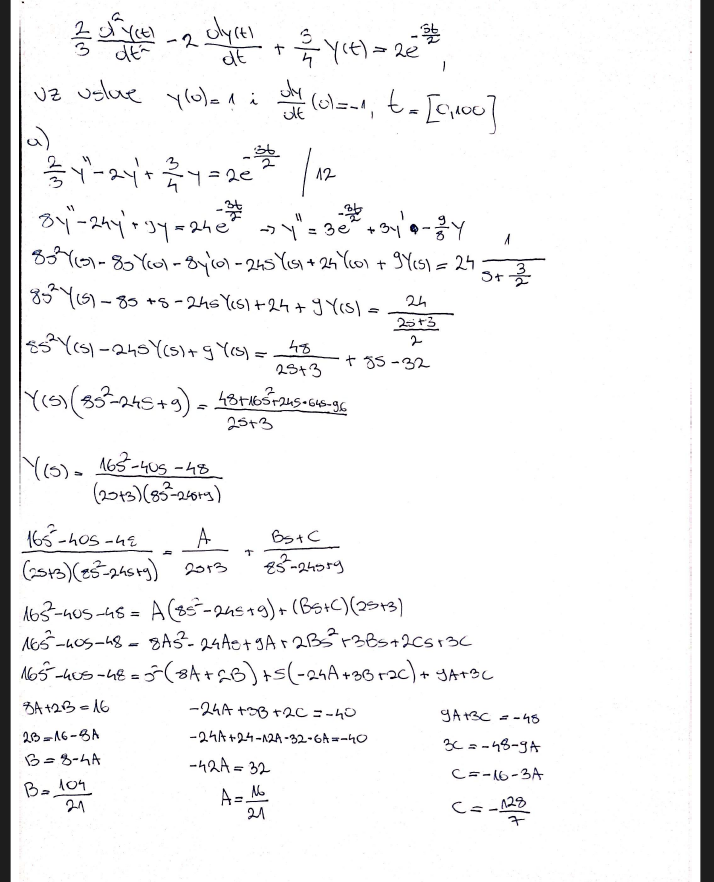 2/3 d²y(t)/dt² - 2 dy(t)/dt + 3/4 y(t) = 2e^(-3t/2),
uz uslove y(0)=1 i dy/dt (0)=-1, t=[0,100]
a)
2/3 y'' - 2y' + 3/4 y = 2e^(-3t/2) /12
8y'' - 24y' + 9y = 24e^(-3t/2) → y'' = 3e^(-3t/2) + 3y' - 9/8 y
8s²Y(s) - 8sY(0) - 8y'(0) - 24sY(s) + 24Y(0) + 9Y(s) = 24 1/(s+3/2)
8s²Y(s) - 8s + 8 - 24sY(s) + 24 + 9Y(s) = 24/((2s+3)/2)
8s²Y(s) - 24sY(s) + 9Y(s) = 48/(2s+3) + 8s - 32
Y(s)(8s²-24s+9) = (48+16s²+24s-64s-96)/(2s+3)
Y(s) = (16s²-40s-48)/((2s+3)(8s²-24s+9))
(16s²-40s-48)/((2s+3)(8s²-24s+9)) = A/(2s+3) + (Bs+C)/(8s²-24s+9)
16s²-40s-48 = A(8s²-24s+9) + (Bs+C)(2s+3)
16s²-40s-48 = 8As²-24As+9A+2Bs²+3Bs+2Cs+3C
16s²-40s-48 = s²(8A+2B) + s(-24A+3B+2C) + 9A+3C
8A+2B=16 -24A+3B+2C=-40 9A+3C=-48
2B=16-8A -24A+24-12A-32-6A=-40 3C=-48-9A
B=8-4A -42A=32 C=-16-3A
B=104/21 A=16/21 C=-128/7